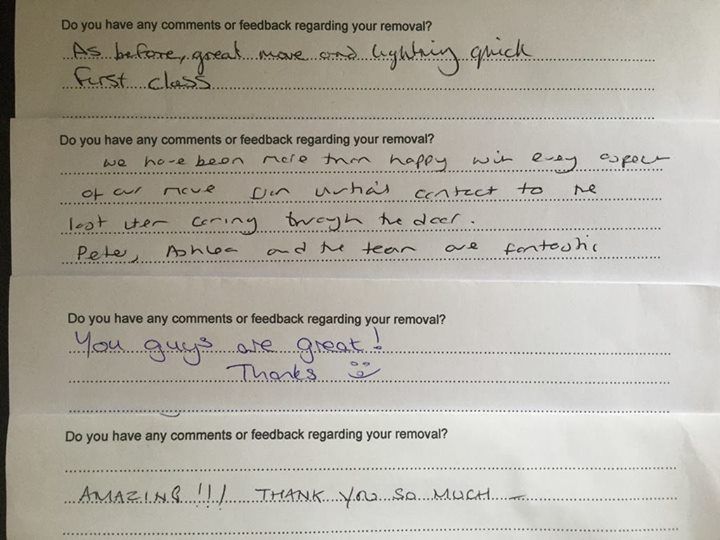 Do you have any comments or feedback regarding your removal?
As before, great move and lightning quick
first class
Do you have any comments or feedback regarding your removal?
we have been more than happy with every aspect
of our move from initial contact to the
last item coming through the door.
Peter, Ashlea and the team are fantastic
Do you have any comments or feedback regarding your removal?
You guys are great!
Thanks
Do you have any comments or feedback regarding your removal?
AMAZING!!! THANK YOU SO MUCH